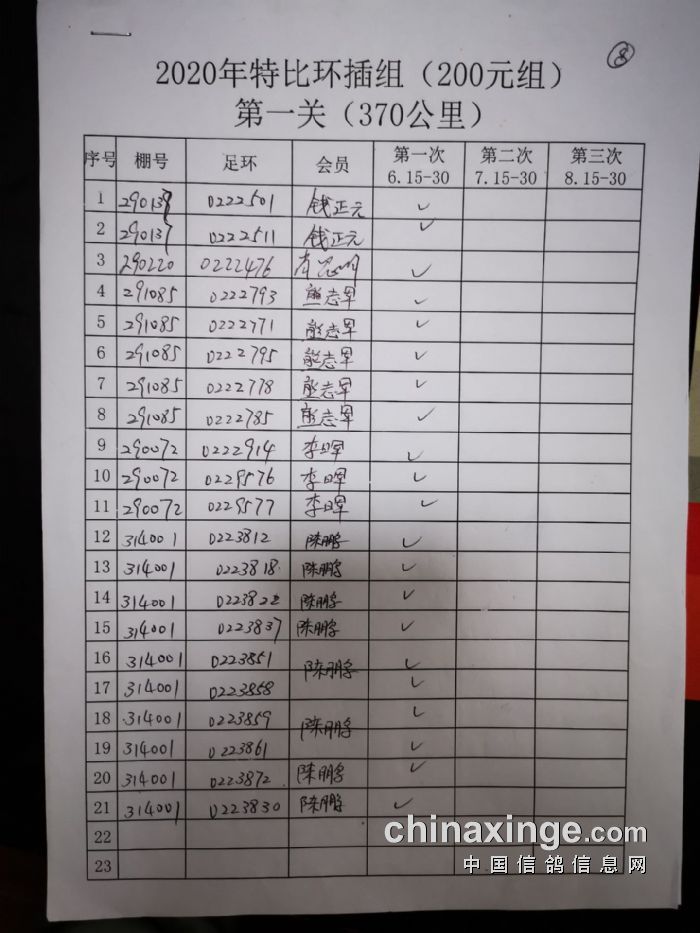 8
2020年特比环插组（200元组）
第一关（370公里）
序号 棚号 足环 会员 第一次 6.15-30 第二次 7.15-30 第三次 8.15-30
1 290137 0222501 钱正元 ✓
2 290137 0222511 钱正元 ✓
3 290220 0222476 ✓
4 291085 0222793 熊志军 ✓
5 291085 0222771 熊志军 ✓
6 291085 0222795 熊志军 ✓
7 291085 0222778 熊志军 ✓
8 291085 0222785 熊志军 ✓
9 290072 0222914 李晖 ✓
10 290072 0229576 李晖 ✓
11 290072 0229577 李晖 ✓
12 314001 0223812 陈鹏 ✓
13 314001 0223818 陈鹏 ✓
14 314001 0223822 陈鹏 ✓
15 314001 0223837 陈鹏 ✓
16 314001 0223851 陈鹏 ✓
17 314001 0223858 ✓
18 314001 0223859 陈鹏 ✓
19 314001 0223861 ✓
20 314001 0223872 陈鹏 ✓
21 314001 0223830 陈鹏 ✓
22
23
chinaxinge.com
中国信鸽信息网